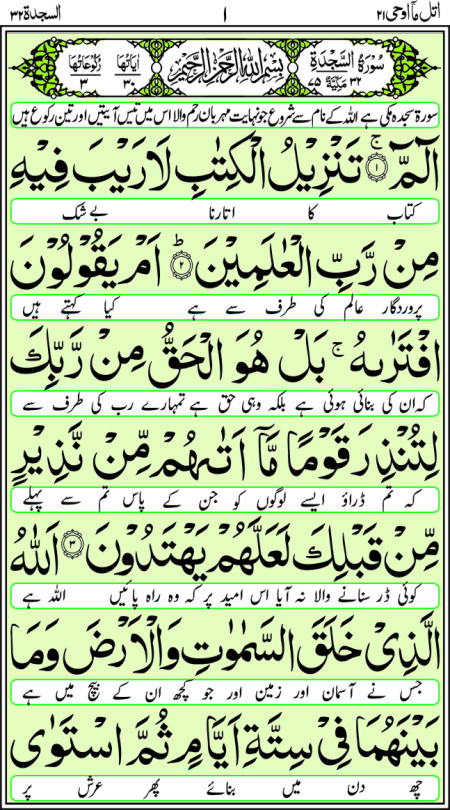 اتل مآ اوحی ۲۱ ۱ السجدة ۳۲
سُوْرَةُ السَّجْدَةِ ۳۲ مَكِّيَّةٌ ۷۵ بِسْمِ اللهِ الرَّحْمٰنِ الرَّحِيْمِ اٰيَاتُهَا ۳۰ رُكُوْعَاتُهَا ۳
سورۃ سجدہ مکی ہے اللہ کے نام سے شروع جو نہایت مہربان رحم والا اس میں تیس آیتیں اور تین رکوع ہیں
الٓمّٓ ۚ﴿۱﴾ تَنْزِيْلُ الْكِتٰبِ لَا رَيْبَ فِيْهِ
کتاب کا اتارنا بے شک
مِنْ رَّبِّ الْعٰلَمِيْنَ ؕ﴿۲﴾ اَمْ يَقُوْلُوْنَ
پروردگار عالم کی طرف سے ہے کیا کہتے ہیں
افْتَرٰىهُ ۚ بَلْ هُوَ الْحَقُّ مِنْ رَّبِّكَ
کہ ان کی بنائی ہوئی ہے بلکہ وہی حق ہے تمہارے رب کی طرف سے
لِتُنْذِرَ قَوْمًا مَّاۤ اَتٰىهُمْ مِّنْ نَّذِيْرٍ
کہ تم ڈراؤ ایسے لوگوں کو جن کے پاس تم سے پہلے
مِّنْ قَبْلِكَ لَعَلَّهُمْ يَهْتَدُوْنَ ﴿۳﴾ اَللّٰهُ
کوئی ڈر سنانے والا نہ آیا اس امید پر کہ وہ راہ پائیں اللہ ہے
الَّذِيْ خَلَقَ السَّمٰوٰتِ وَالْاَرْضَ وَمَا
جس نے آسمان اور زمین اور جو کچھ ان کے بیچ میں ہے
بَيْنَهُمَا فِيْ سِتَّةِ اَيَّامٍ ثُمَّ اسْتَوٰى
چھ دن میں بنائے پھر عرش پر